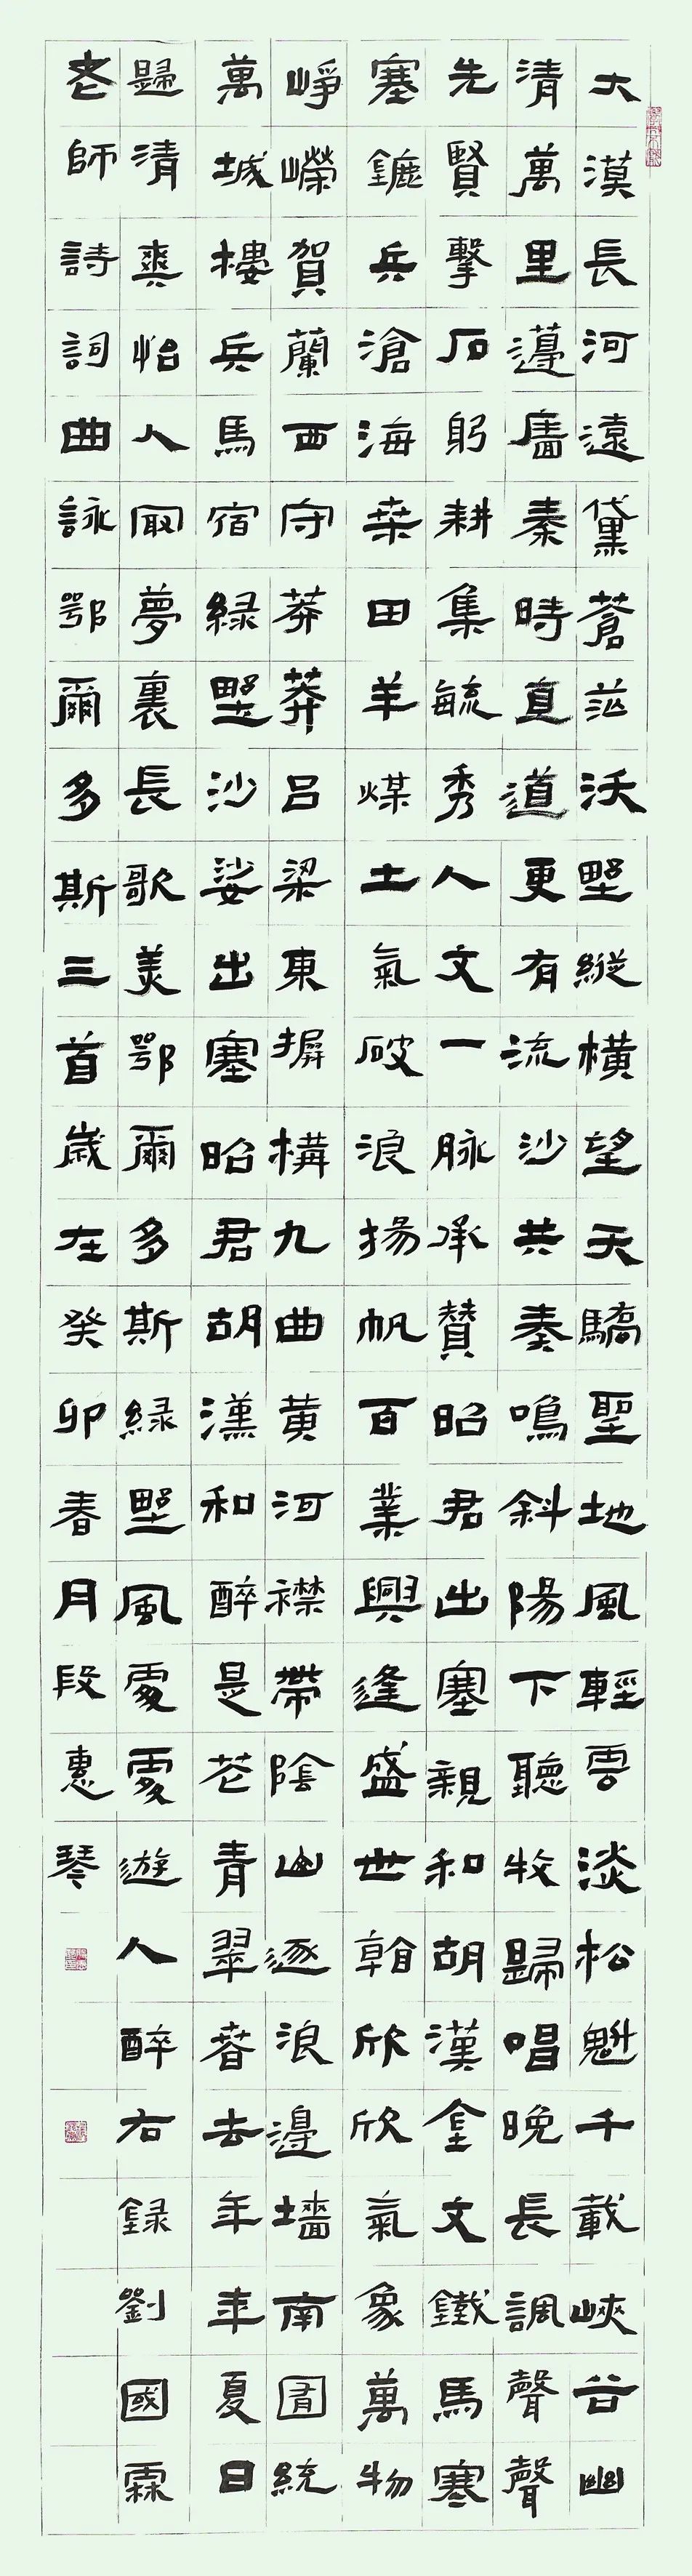 大漠長河遠黛蒼茫沃野縱橫望天驕聖地風輕雲淡松魁千載峽谷幽
清萬里邊廧秦時直道更有流沙共奏鳴斜陽下聽牧歸唱晚長諷聲聲
先賢擊石躬耕集毓秀人文一脉承贊昭君出塞親和胡漢金文鐵馬寒
塞鏕兵滄海桑田羊煤土氣破浪揚帆百業興逢盛世欣欣氣象萬物
崢嶸賀蘭西守莽莽吕梁東摒構九曲黄河襟帶陰山逐浪邊墻南囿統
萬城樓兵馬宿緑野沙娑出塞昭君胡漢和醉是花青翠春去年年夏日
歸清爽怡人冣夢裏長歌美鄂爾多斯緑野風處處遊人醉右録劉國霖
老師詩詞曲詠鄂爾多斯三首歲在癸卯春月段惠琴